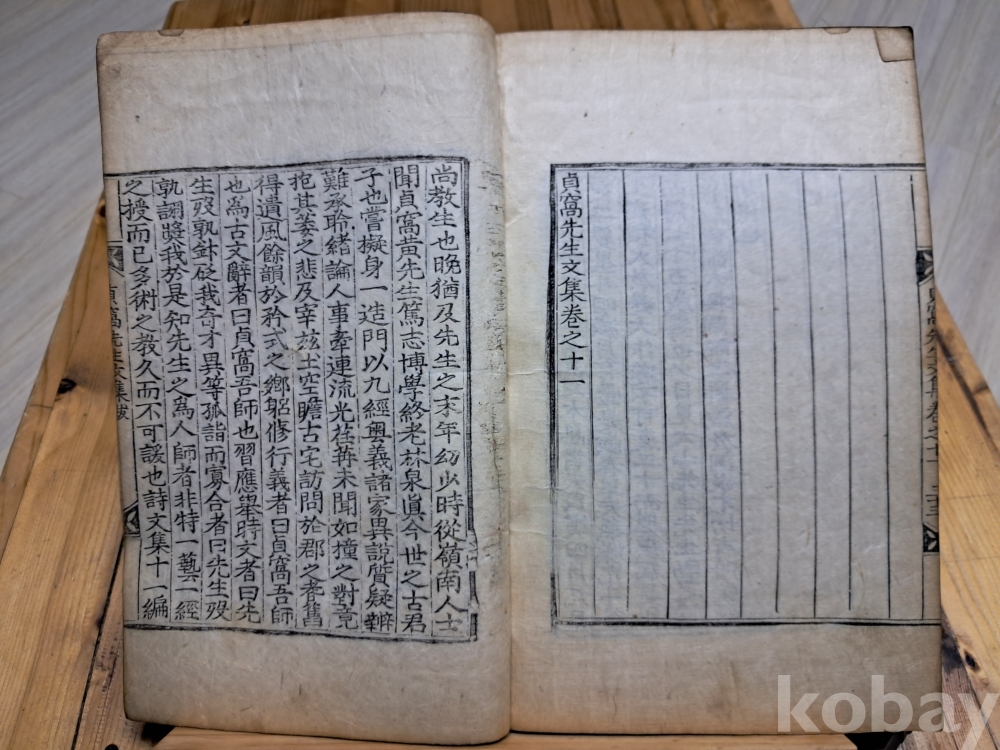 貞窩先生文集卷之十一
尚教生也晚猶及先生之末年幼少時從嶺南人士
聞貞窩黃先生篤志博學終老林泉眞今世之古君
子也嘗擬身一造門以九經奧義諸家異說質疑辨
難承聆緒論人事牽連流光荏苒未聞如撞之對竟
抱甚萎之悲及宰玆土空瞻古宅訪問於郡之耆舊
得遺風餘韻於矜式之鄉躬修行義者曰貞窩吾師
也爲古文辭者曰貞窩吾師也習應擧時文者曰先
生歿孰針砭我奇才異等孤詣而寡合者曰先生歿
孰詡奬我於是知先生之爲人師者非特一藝一經
之授而已多術之教久而不可諼也詩文集十一編
貞窩先生文集跋
貞窩先生文集卷之十一
kobay